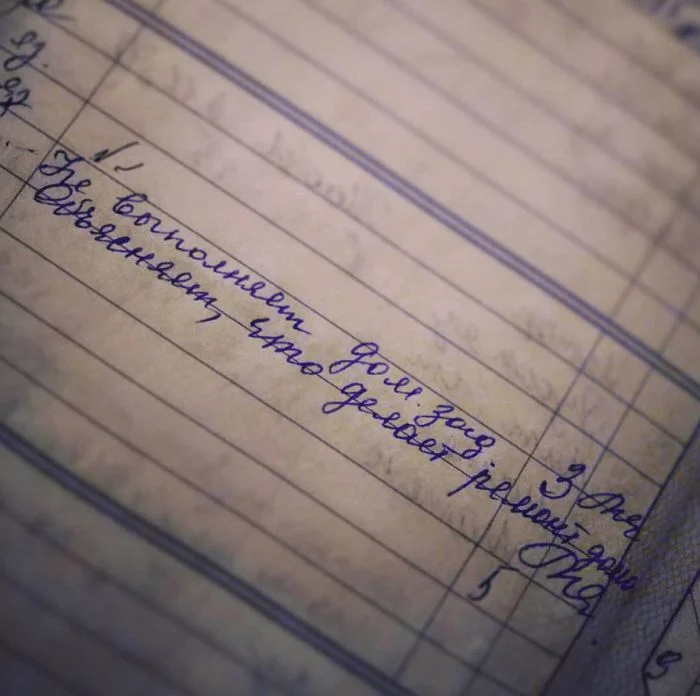 яз.
Не выполняет дом. зад. 3
Объясняет, что делает ремонт дома
5